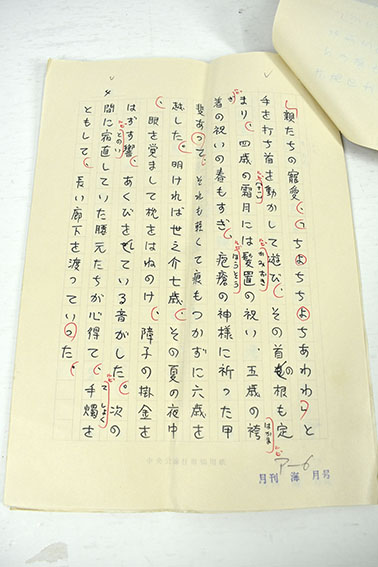 親たちの寵愛、「ちよちちよちあわわ」と
手を打ち首を動かして遊び、その首の根も定
まり、四歳の霜月には髪置の祝い、五歳の袴
かみおき
はかま
着の祝いの春もすぎ、疱瘡の神様に祈った甲
ぎ
ほうそう
斐あって、それも軽くて痕もつかずに六歳を
越した。明ければ世之介七歳。その夏の夜中
眼を覚まして枕をはねのけ、障子の掛金を
はずす響、あくびをしている音がした。次の
間に宿直していた腰元たちが心得て、手燭を
とのい
てしょく
ともして、長い廊下を渡っていった。
P-6
月刊 海 月号